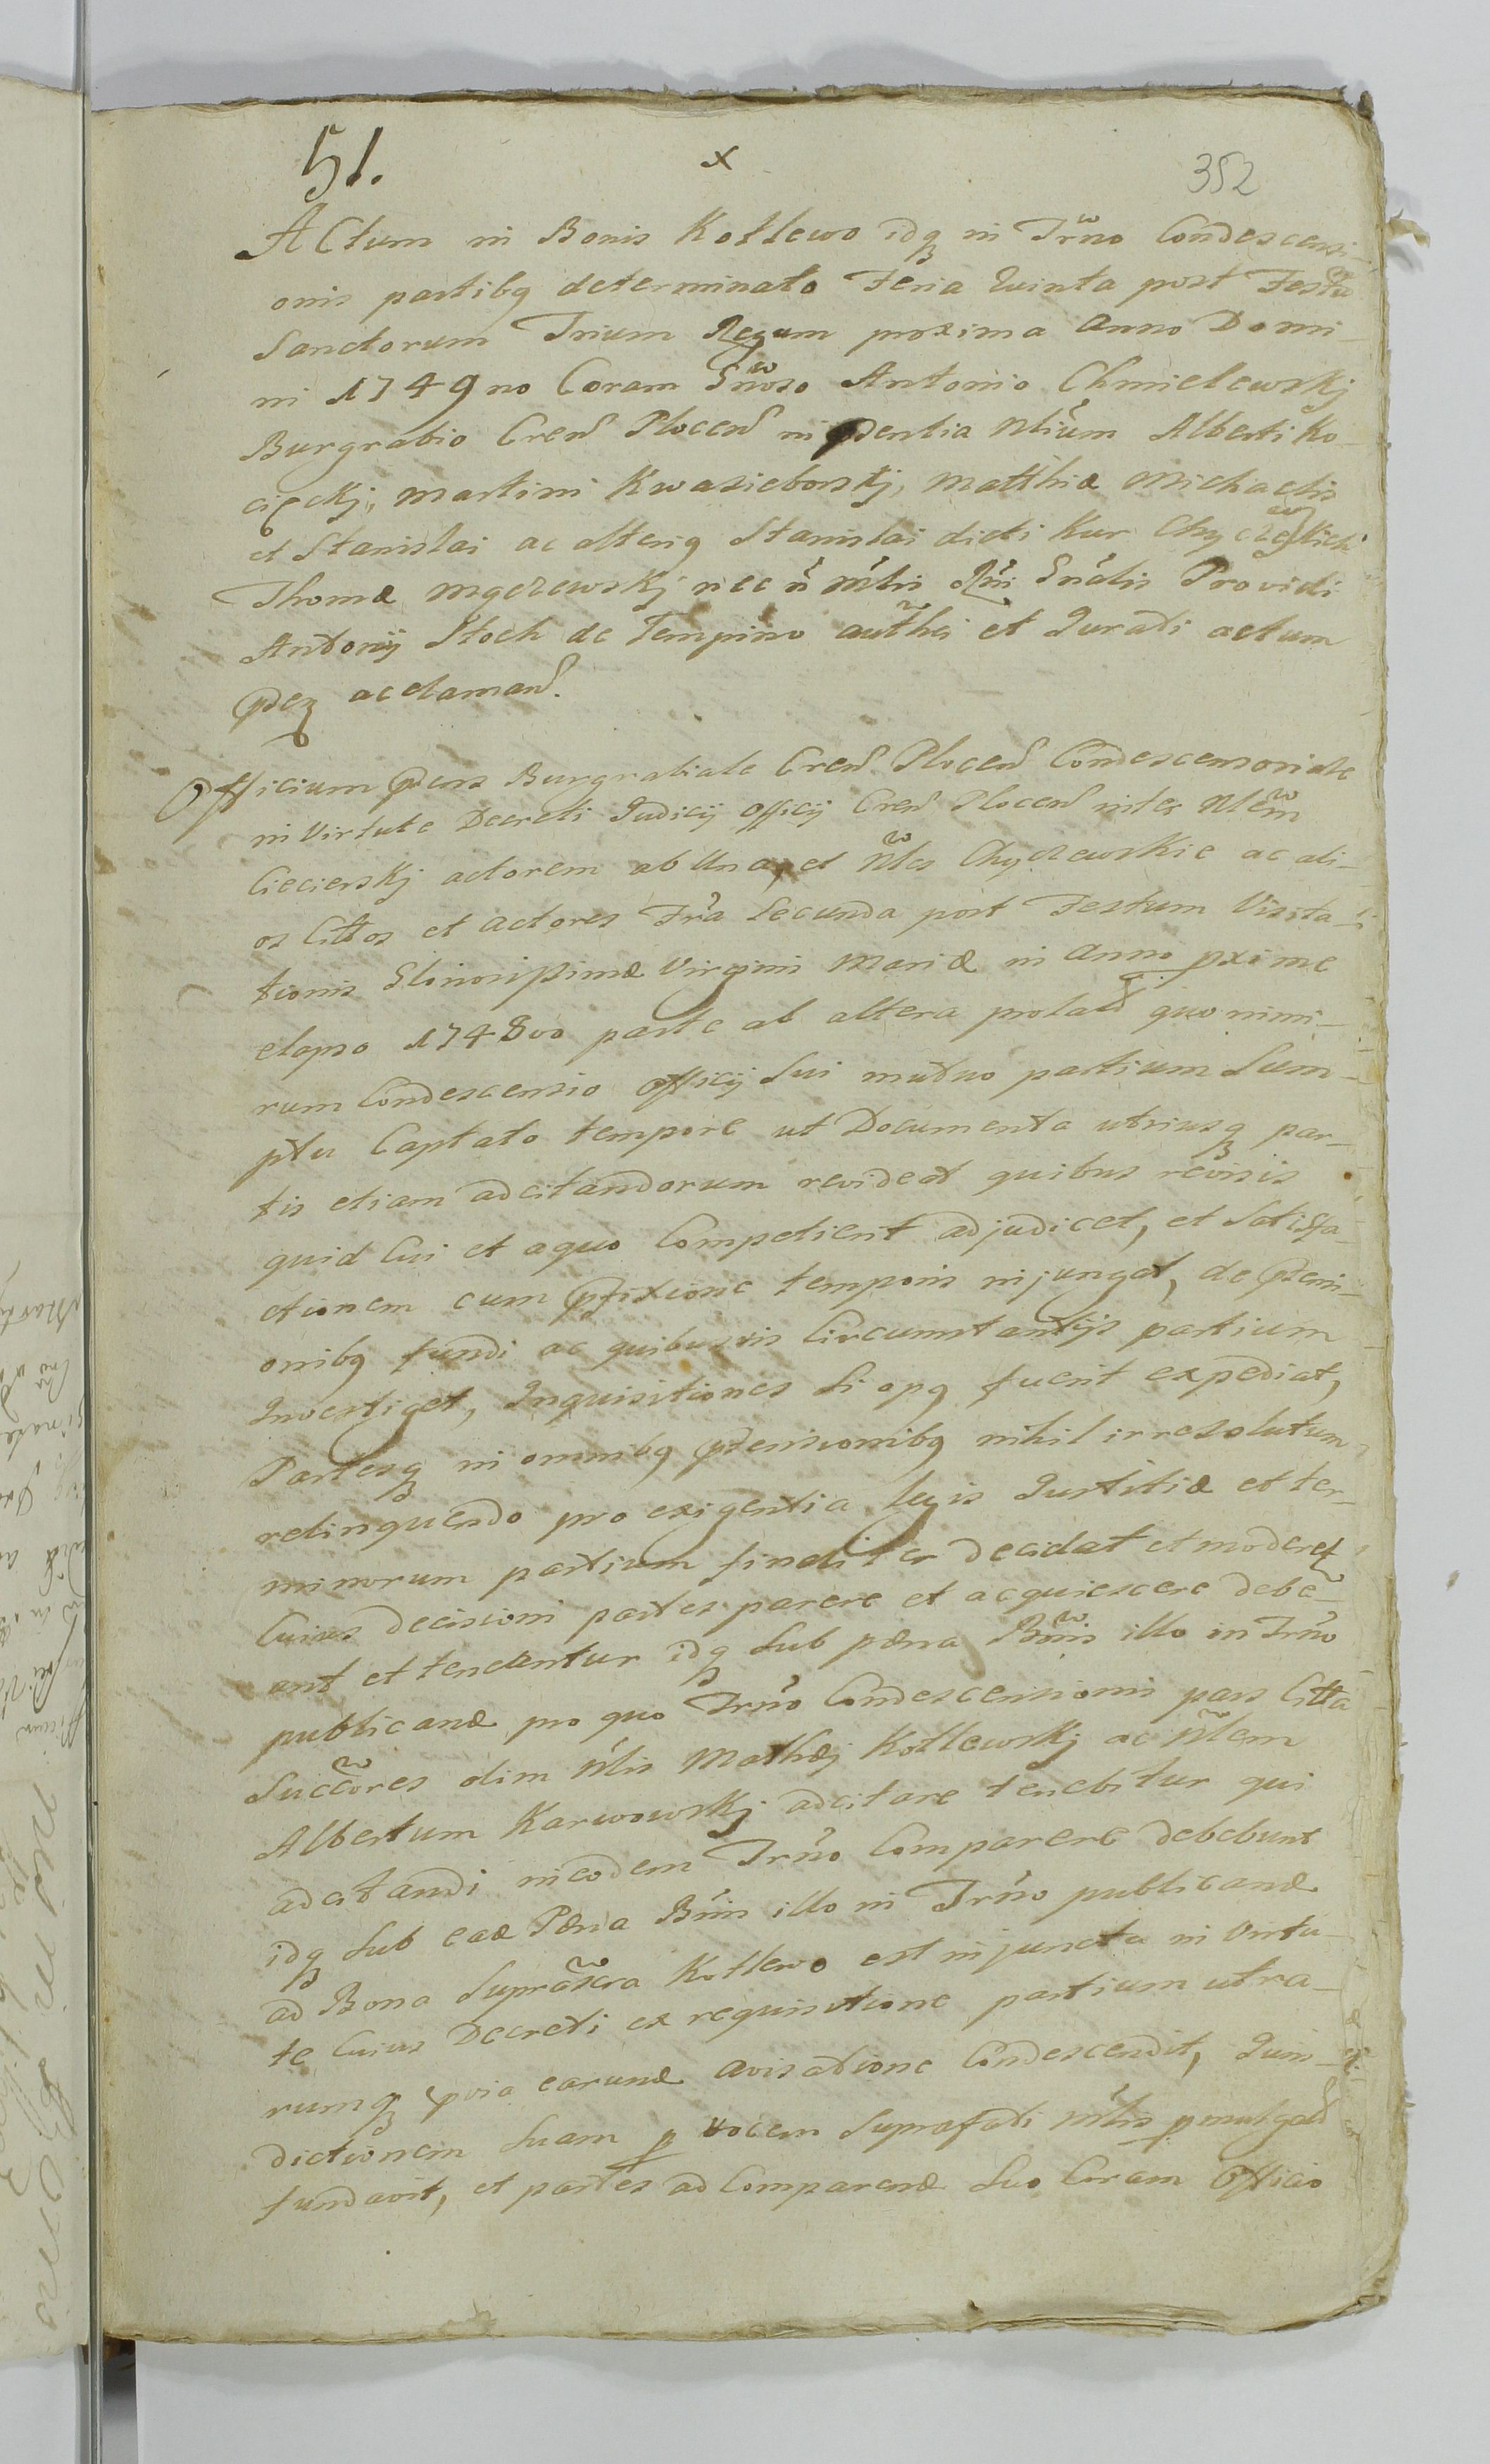 51. x 352
ACtum in Bonis Kotlewo idq in Trno Condescensi-
onis partibq determinato Feria Quinta post Festu
Sanctorum Trium Regum proxima Anno Domi-
ni 1749no Coram Gnoso Antonio Chmielewskj
Burgrabio Cren Plocen in pdentia Nlium Alberti Ko-
cięckj, Martini Kwasieborskj, Matthiæ Michaelis
et Stanislai ac alteriq Stanislai dicti Kur Chyczewskich
Thomæ Mgczewskj nec n Mlis Rni Gnalis Providi
Antonij Stoch de Tempino authci et Jurati actum
pdeq acclaman.
Officium pdens Burgrabiale Cren Plocen Condescensoriale
in Virtute Decreti Judicij Officij Cren Plocen inter Nlem
Ciecierskj actorem ab Una, et Nles Chyczewskie ac ali-
os Cittos et Actores Fra Secunda post Festum Visita-
tionis Gloriosissimæ Virginis Mariæ in Anno pxime
elapso 1748vo parte ab altera prolat quo nimi-
rum Condescensio Officij Sui mutuo partium Sum-
ptu Captato tempore ut Documenta utriusq par-
tis etiam adcitandorum revideat quibus revisis
quid Cui et aquo Competierit adjudicet, et Satisfa-
ctionem cum pfixione temporis injungat, de ptensi-
onibq fundi ac quibusvis Circumstantijs partium
Investiget, Inquisitiones Si opq fuerit expediat,
Partesq in omnibq ptensionibq nihil irresolutum
relinquendo pro exigentia legis Justitiæ et ter-
minorum partium finaliter decidat et moderet
Cuius decisioni partes parere et acquiescere debe-
ant et teneantur idq Sub pœna Bnis illo in Trno
publicanæ pro quo Trno Condescensionis pars Citta
Succores olim Nlis Mathæj Kotlewskj ac Nlem
Albertum Karwowskj adcitare tenebitur qui
adcitandi in eodem Trno Comparere debebunt
idq Sub eadæ Pœna Bnis illo in Trno publicanæ
ad Bona Suprascra Kotlewo est injuncta in Virtu-
te Cuius Decreti ex requisitione partium utra-
rumq pvia earunæ avisatione Condescendit, Juris-
dictionem Suam p vocem Suprafati Mlis pmulgat
fundavit, et partes ad Comparenæ Suo Coram Officio